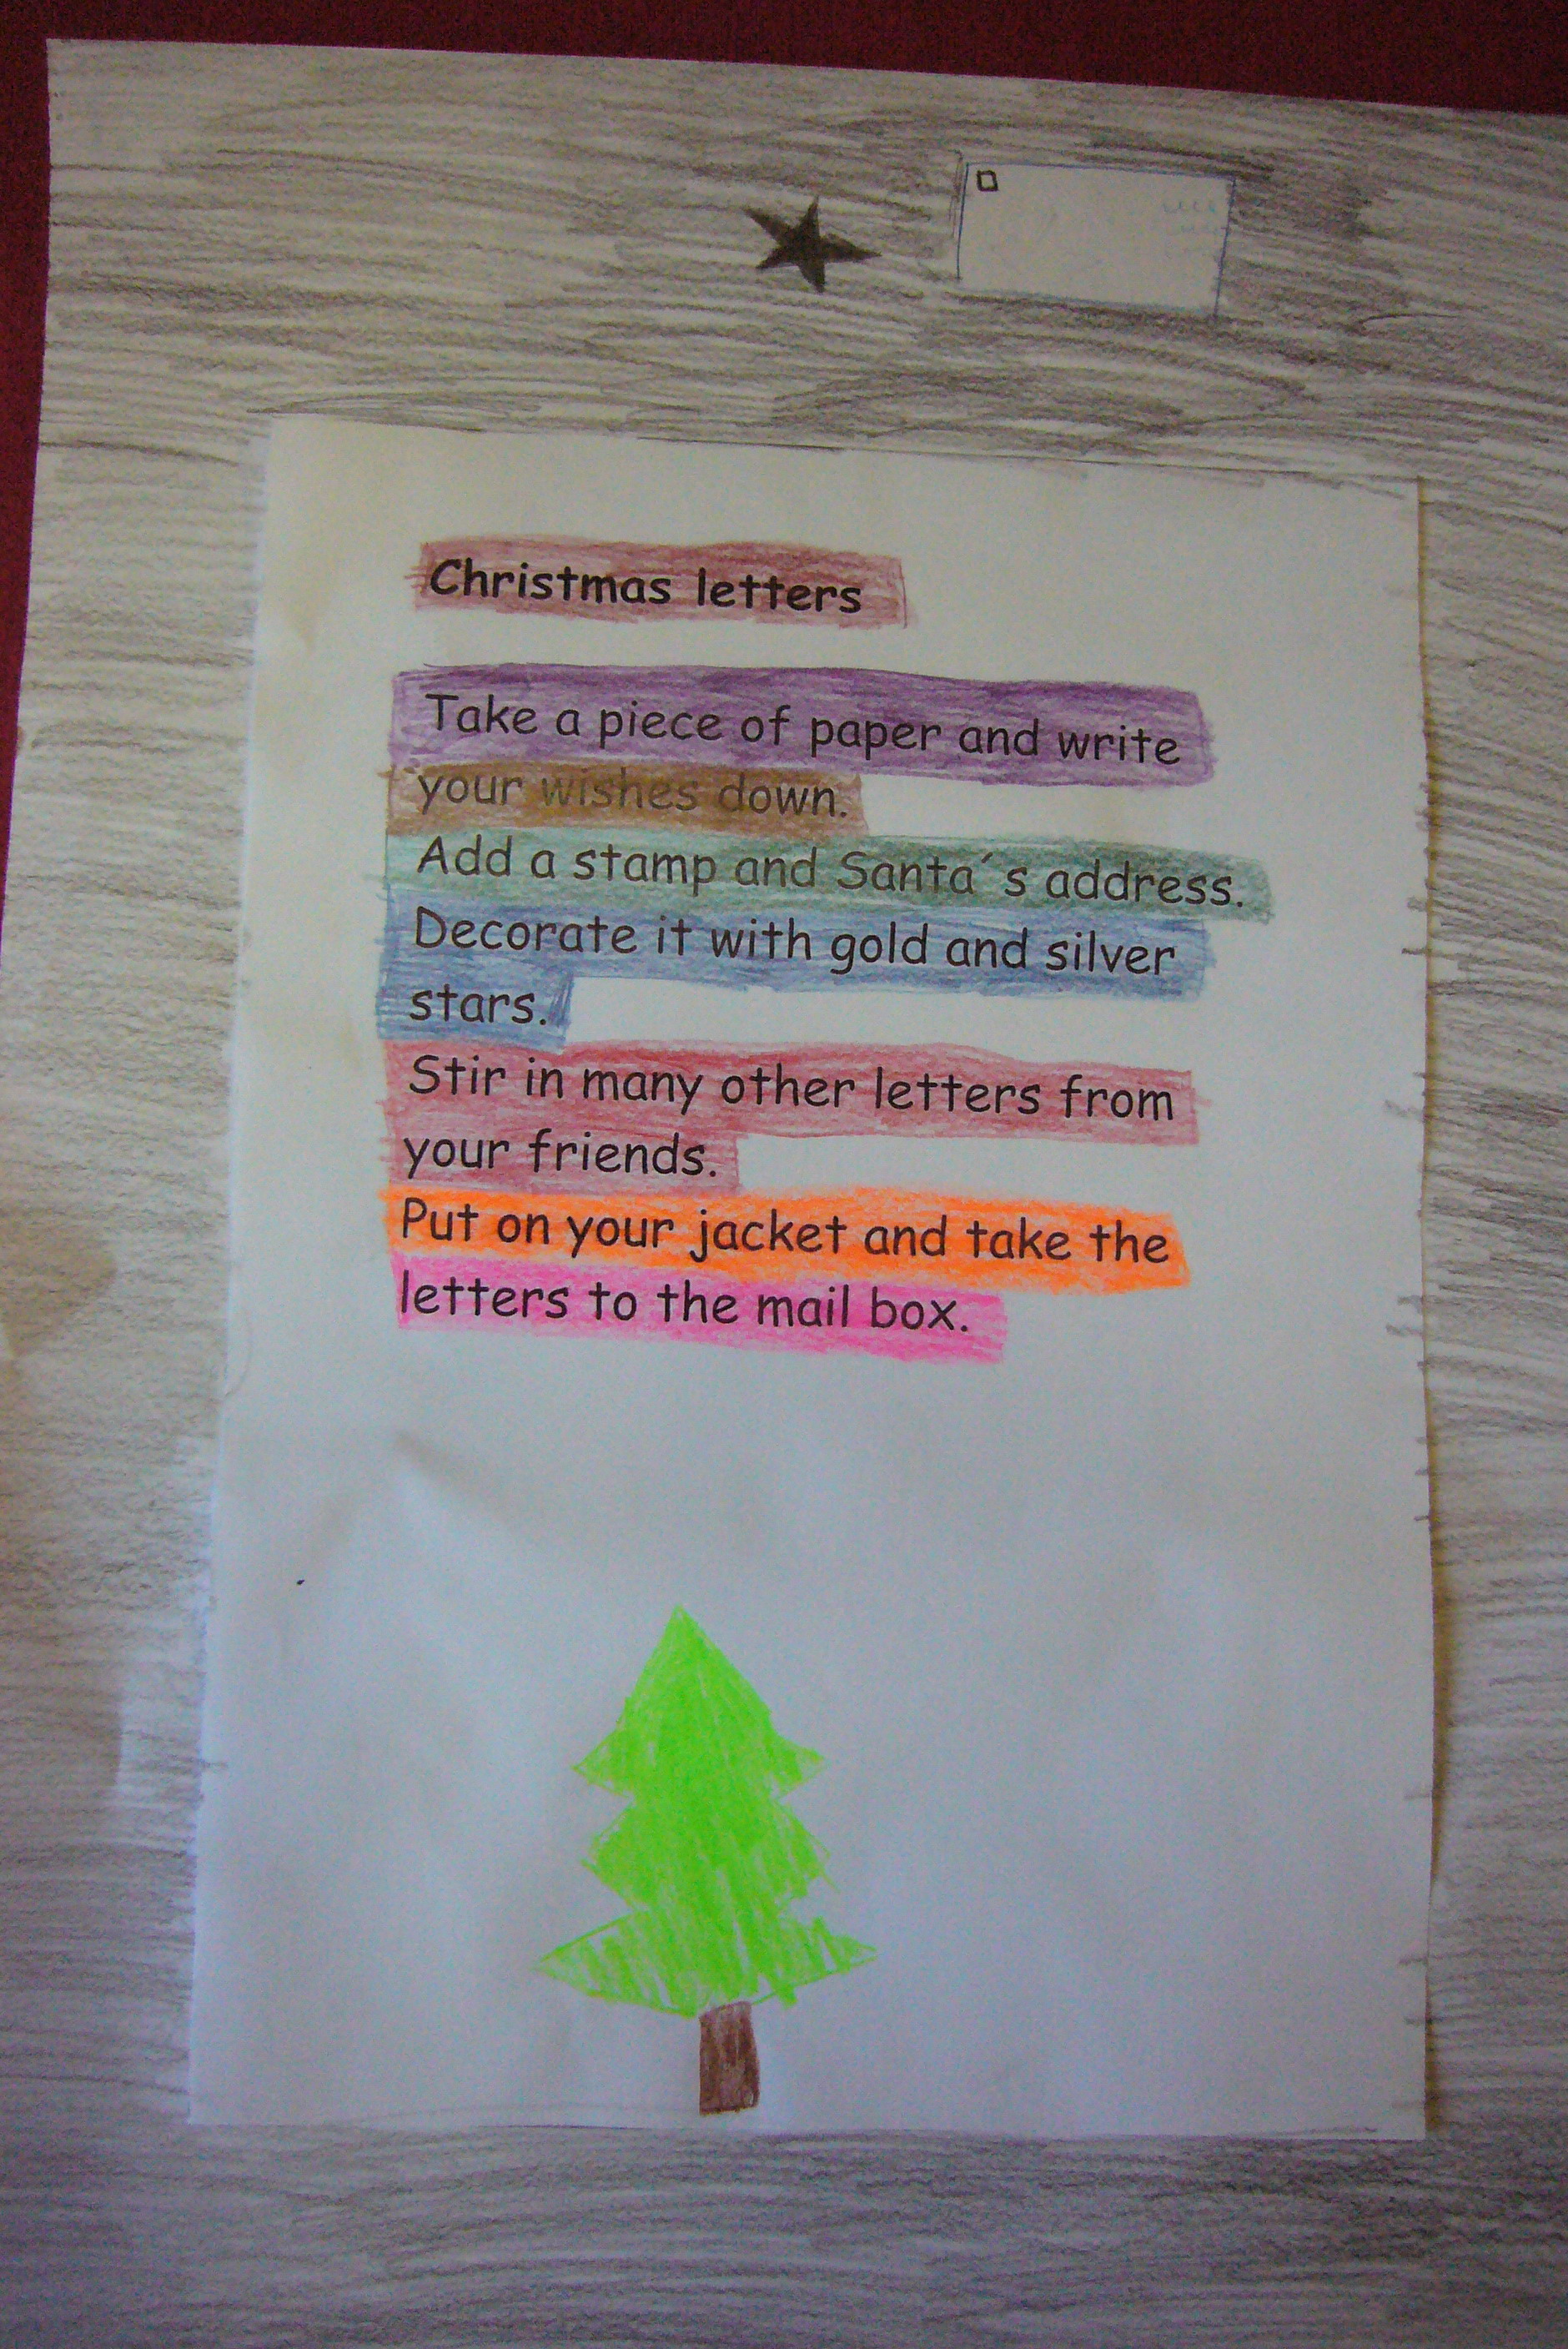 Christmas letters
Take a piece of paper and write
your wishes down.
Add a stamp and Santa´s address.
Decorate it with gold and silver
stars.
Stir in many other letters from
your friends.
Put on your jacket and take the
letters to the mail box.